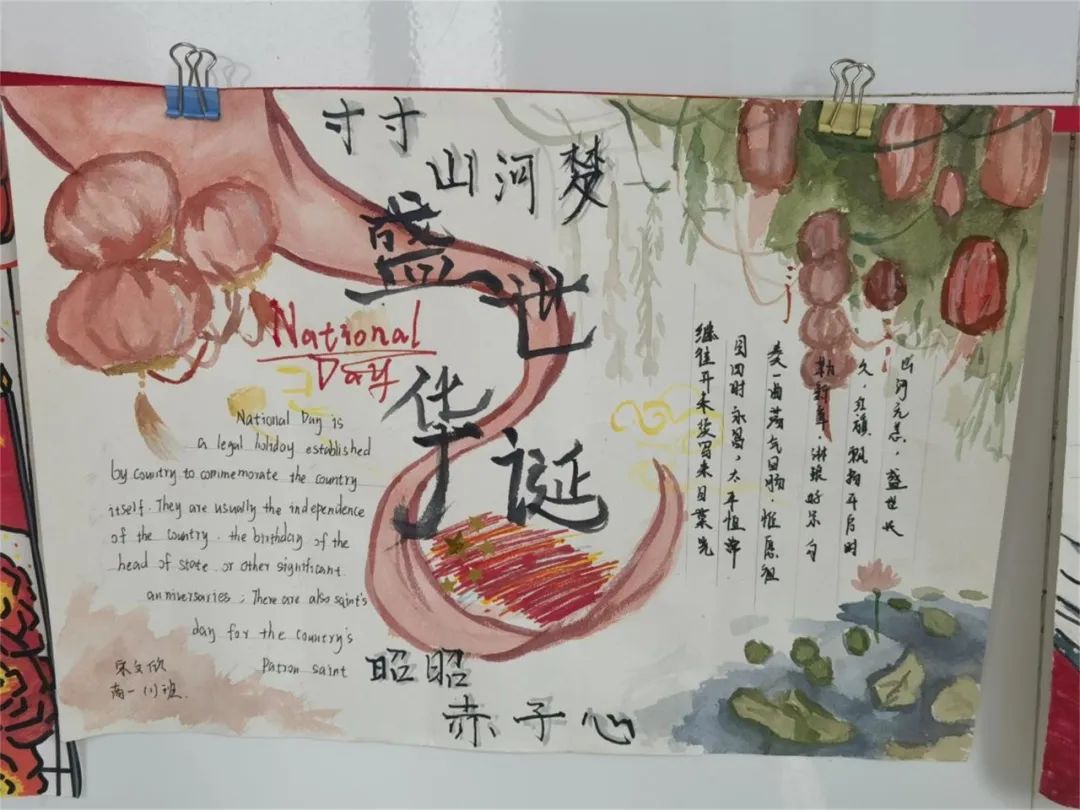 寸寸
山河梦
盛世
华诞
National
Day
National Day is
a legal holiday established
by country to commemorate the country
itself. They are usually the independence
of the country. the birthday of the
head of state or other significant
anniversaries ; There are also saint's
day for the country's
Patron saint
山河无恙，盛世长
久，红旗飘扬开启时
新年，好乐句
奏一曲荡气回肠，惟愿祖
国四时永昌，太平恒
继往开来 来日
昭昭
赤子心
宋文欣
高一(1)班